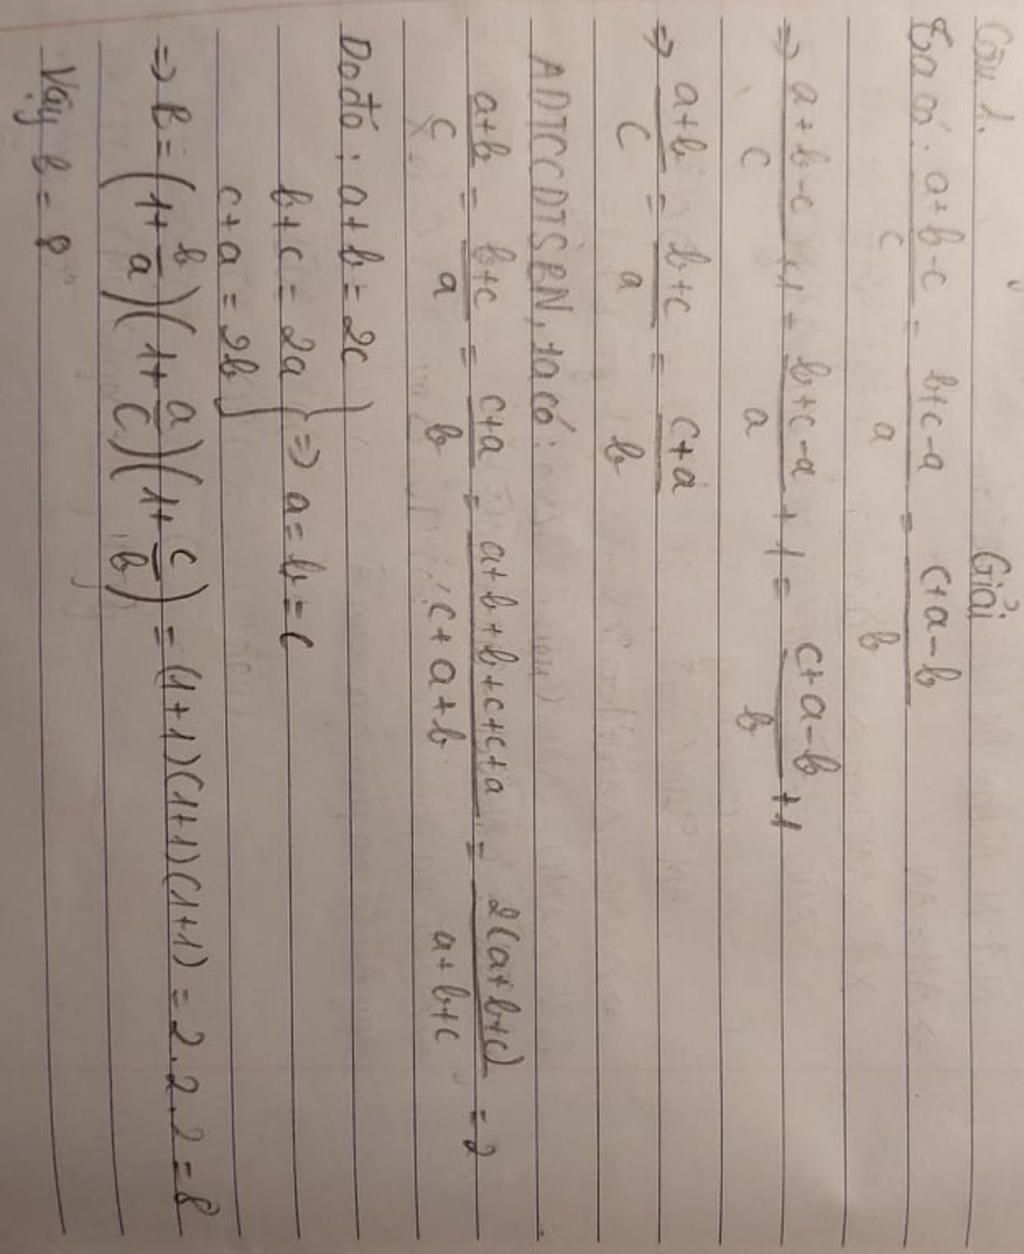 Giải
Câu 1.
Ta có: a+b-c/c = b+c-a/a = c+a-b/b
=> a+b-c/c +1 = b+c-a/a +1 = c+a-b/b +1
=> a+b/c = b+c/a = c+a/b
ADTCCDTSBN, ta có:
a+b/c = b+c/a = c+a/b = a+b+b+c+c+a/c+a+b = 2(a+b+c)/a+b+c = 2
Do đó: a+b=2c
b+c=2a } => a=b=c
c+a=2b
=> B=(1+b/a)(1+a/c)(1+c/b) = (1+1)(1+1)(1+1) = 2.2.2=8
Vậy B=8